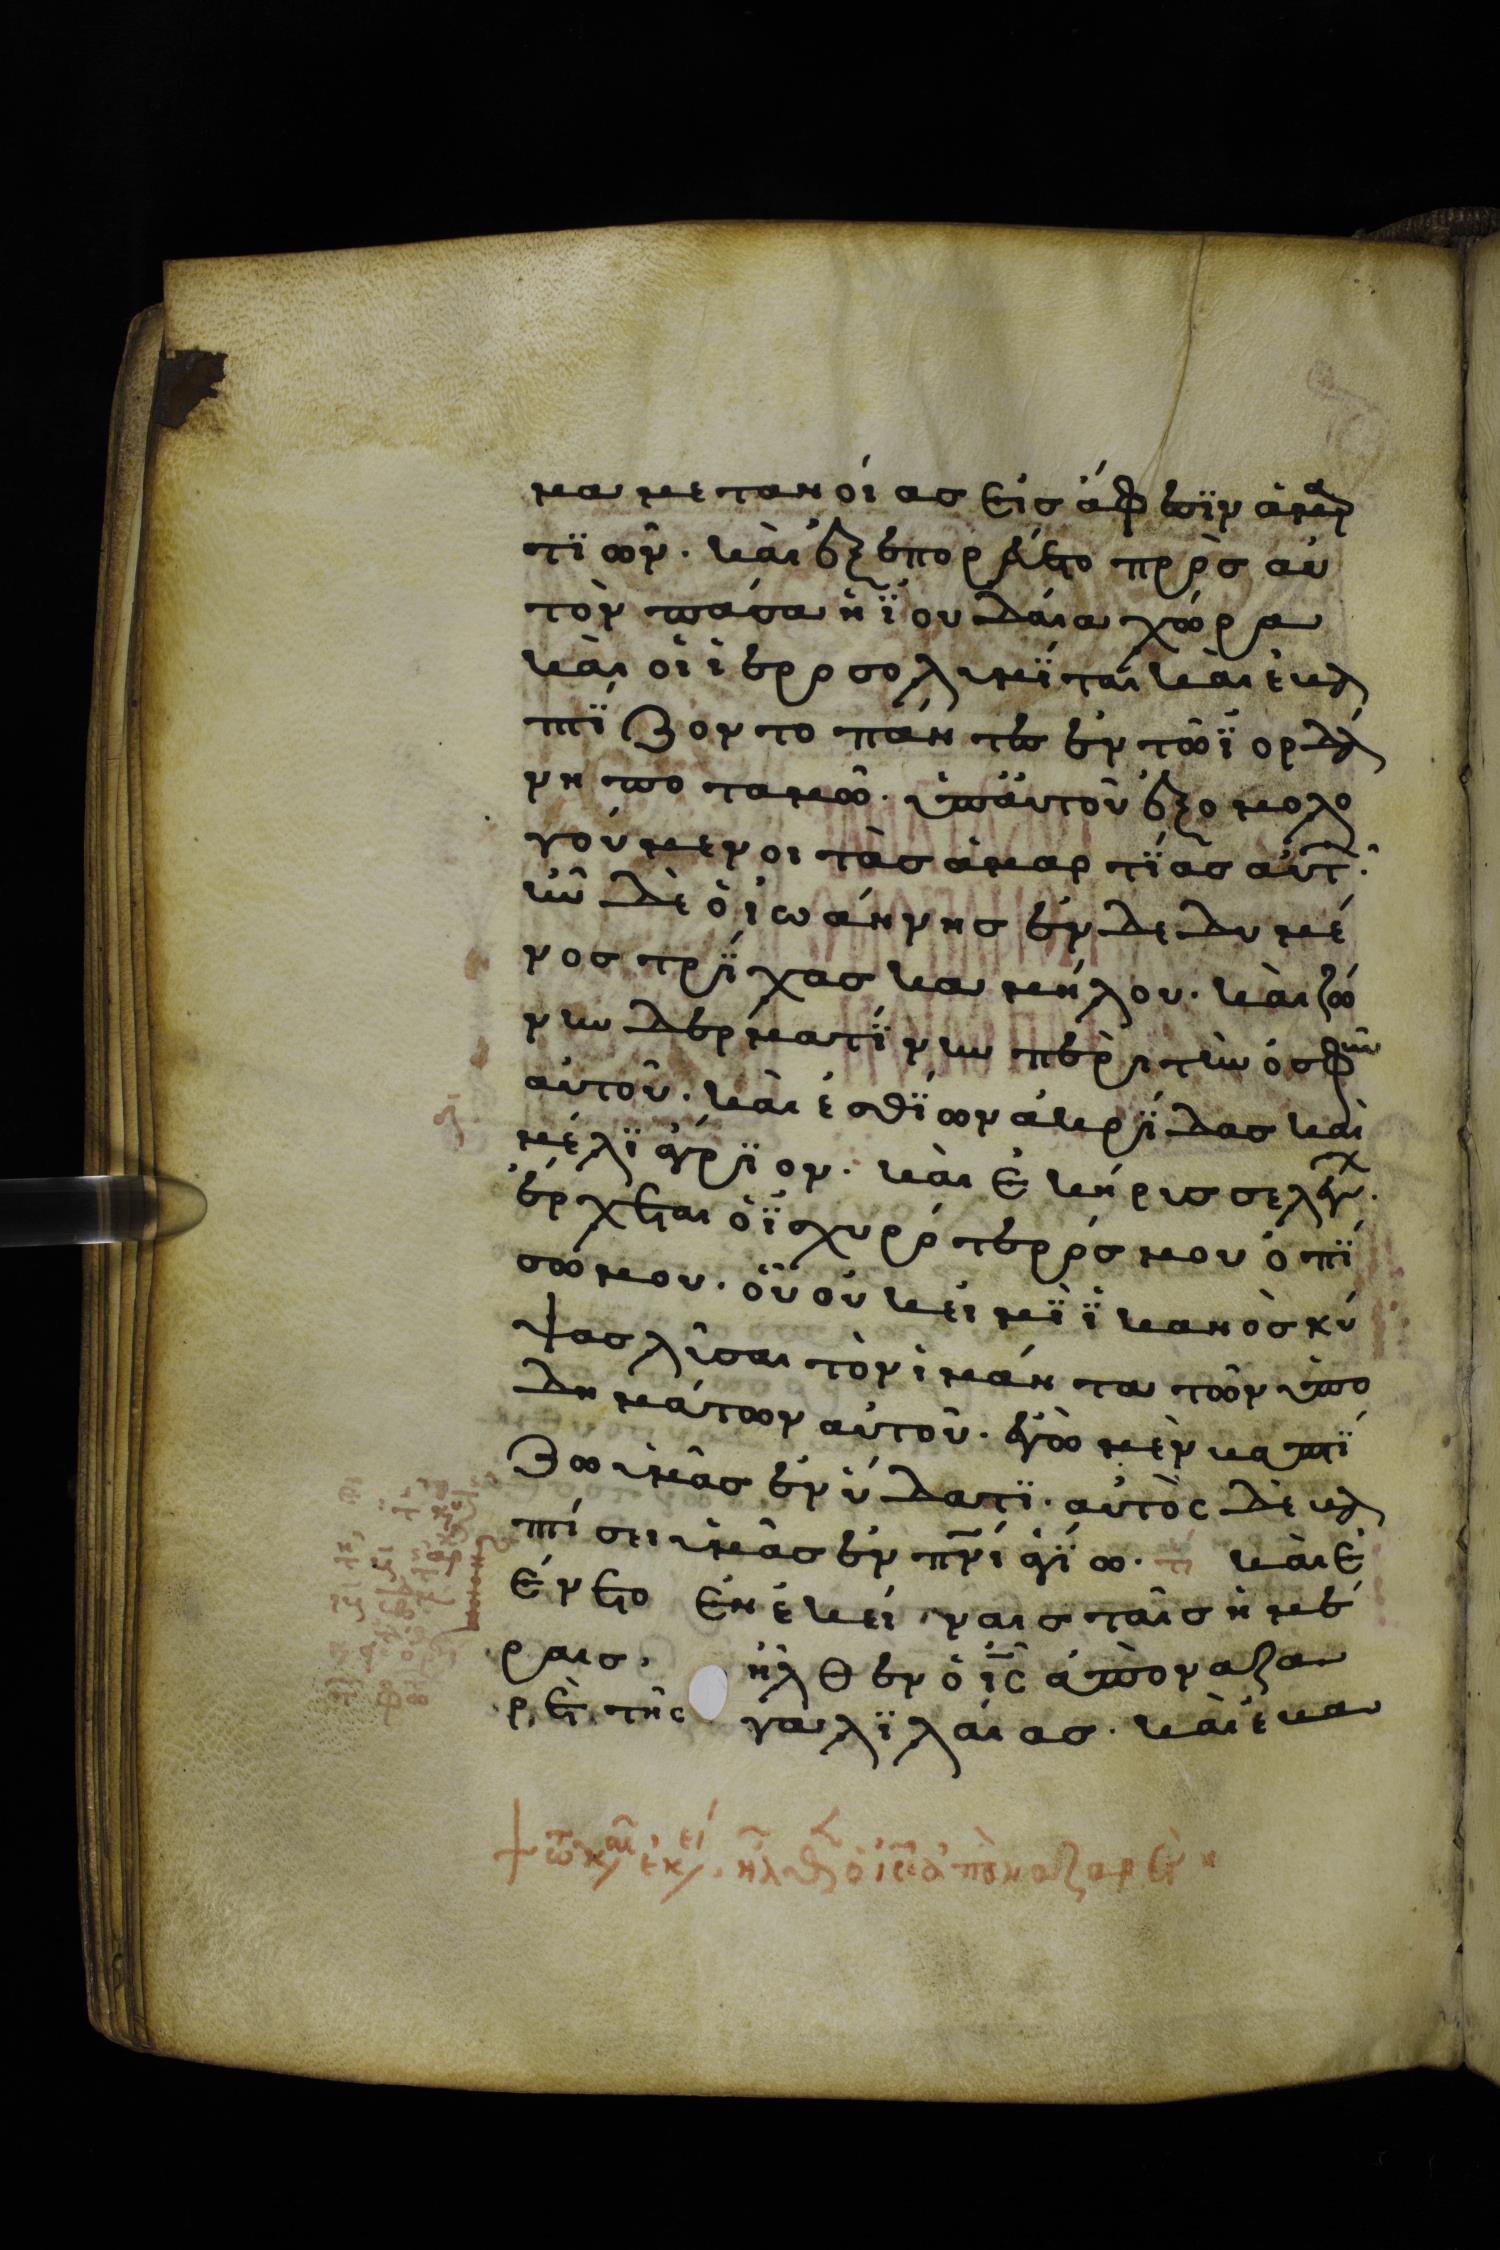 μα μετανοίας εἰς ἄφεσϊν ἁμαρ
τϊῶν. καὶ ἐξεπορεύετο πρὸς αὐ
τὸν πᾶσα ἡ ϊουδαία χώρα
καὶ οἱ ἱεροσολυμῖται καὶ ἐβα
πτΐζοντο πάντες ἐν τῶ ϊορδά
νη ποταμῶ. ὑπ ἀυτοῦ ἐξομολο
γούμενοι τὰς ἁμαρτΐας αὐτ.
ἦν δὲ ὁ ἰωάννης ἐνδεδυμέ
νος τρΐχας καμήλου. καὶ ζώ
νην δερματΐνην περὶ τὴν ὀσφὺν
αὐτοῦ. καὶ ἐσθΐων ἀκρΐδας καὶ
μέλϊ ἄγρϊον. καὶ ἐκήρισσε λέγων.
ἔρχεται ὁ ϊσχυρότερός μου ὀπΐ
σω μου. οὗ οὐκ εἰμϊ ϊκανὸς κύ
ψας λῦσαι τὸν ἱμάντα τῶν ὑπο
δημάτων αὐτοῦ. ἐγὼ μὲν βαπτΐ
ζω ὑμᾶς ἐν ὕδατϊ. αὐτὸς δὲ βα
πτίσει ὑμᾶς ἐν πνι ἁγΐω. τε καὶ ἐ
γένετο ἐν ἐκείναις ταῖς ἡμέ
ραις. ἦλθεν ὁ ις ἀπὸ ναζα
ρετ τῆς γαλϊλαίας. καὶ ἐβα
τῶ κ ἐκ. ἦλθεν ὁ ις ἀπὸ ναζαρετ